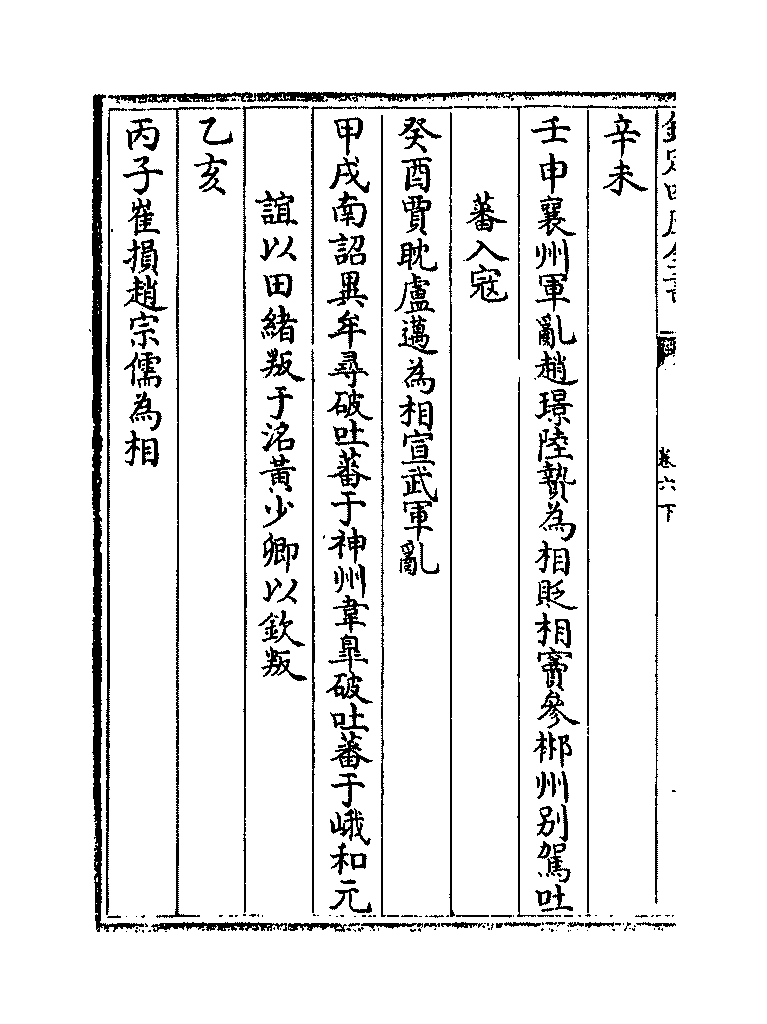 辛未
壬申襄州軍亂趙璟陸贄為相貶相竇參郴州别駕吐
蕃入寇
癸酉賈耽盧邁為相宣武軍亂
甲戌南詔異牟尋破吐蕃于神州韋臯破吐蕃于峨和元
誼以田緒叛于洺黃少卿以欽叛
乙亥
丙子崔損趙宗儒為相
卷六下